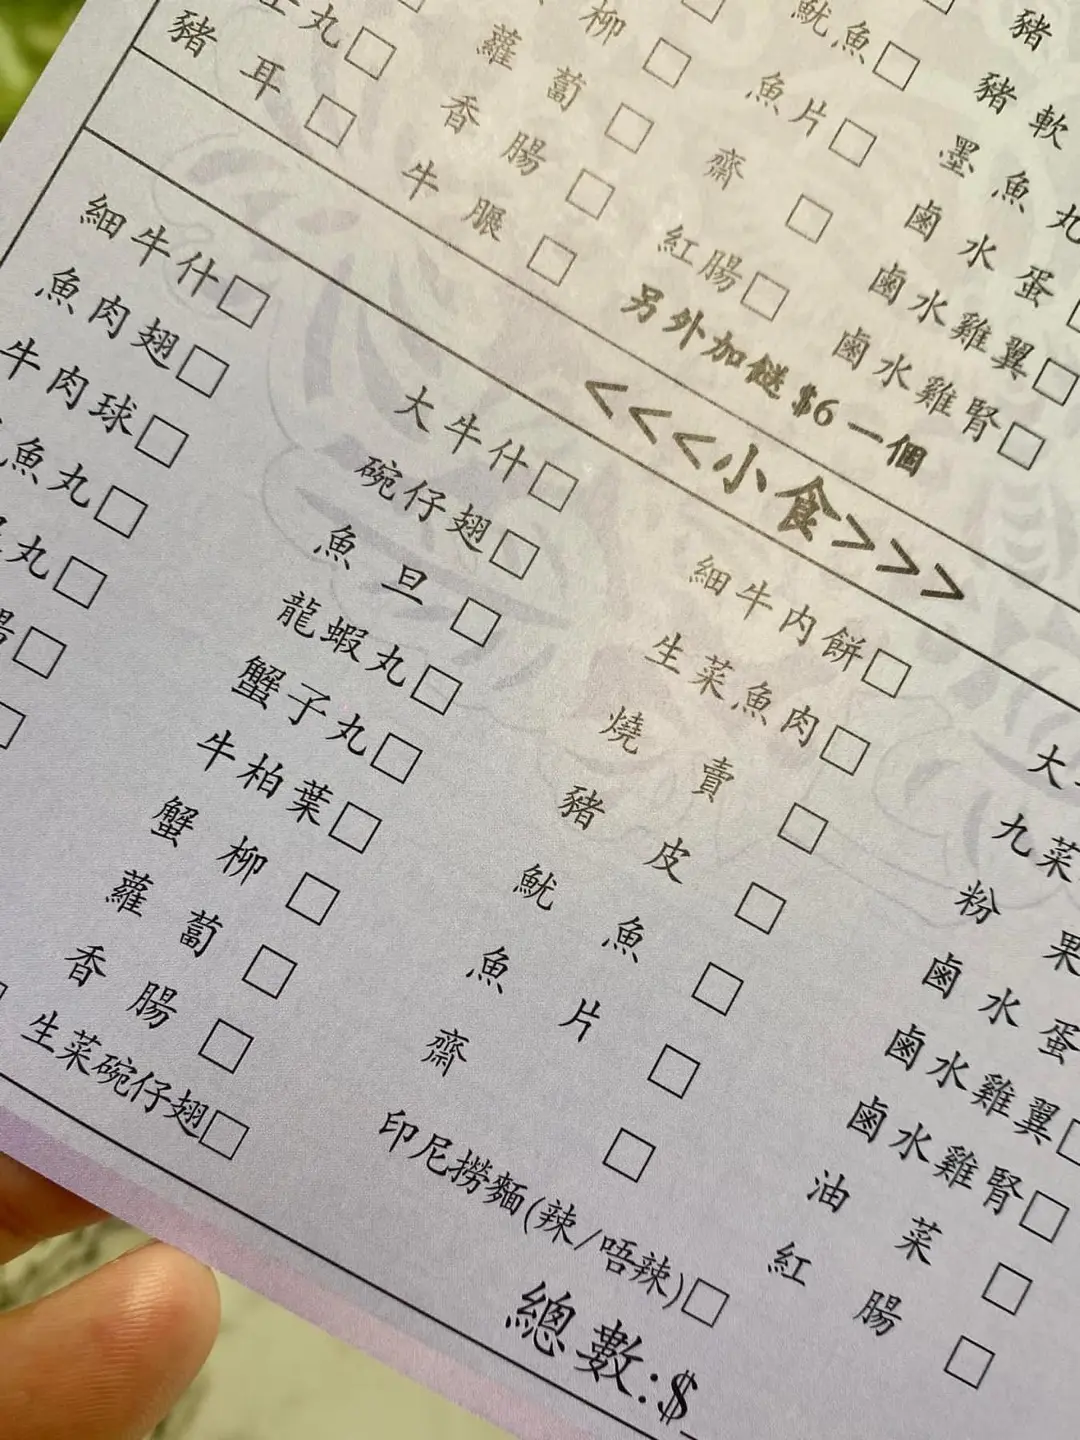 豬
豬軟
柳□ 魷魚□ 墨魚丸
蘿蔔□ 魚片□ 鹵水蛋
丸□ 香腸□ 齋□ 鹵水雞翼□
豬耳□ 牛脤□ 紅腸□ 鹵水雞腎□
另外加餸$6一個
<<<小食>>>
細牛什□ 大牛什□ 細牛內餅□ 大
魚肉翅□ 碗仔翅□ 生菜魚肉□ 九菜
牛肉球□ 魚旦□ 燒賣□ 粉果
魚丸□ 龍蝦丸□ 豬皮□ 鹵水蛋
丸□ 蟹子丸□ 魷魚□ 鹵水雞翼□
□ 牛柏葉□ 魚片□ 鹵水雞腎□
□ 蟹柳□ 齋□ 油菜□
蘿蔔□ 印尼撈麵(辣/唔辣)□ 紅腸□
香腸□
生菜碗仔翅□
總數:$